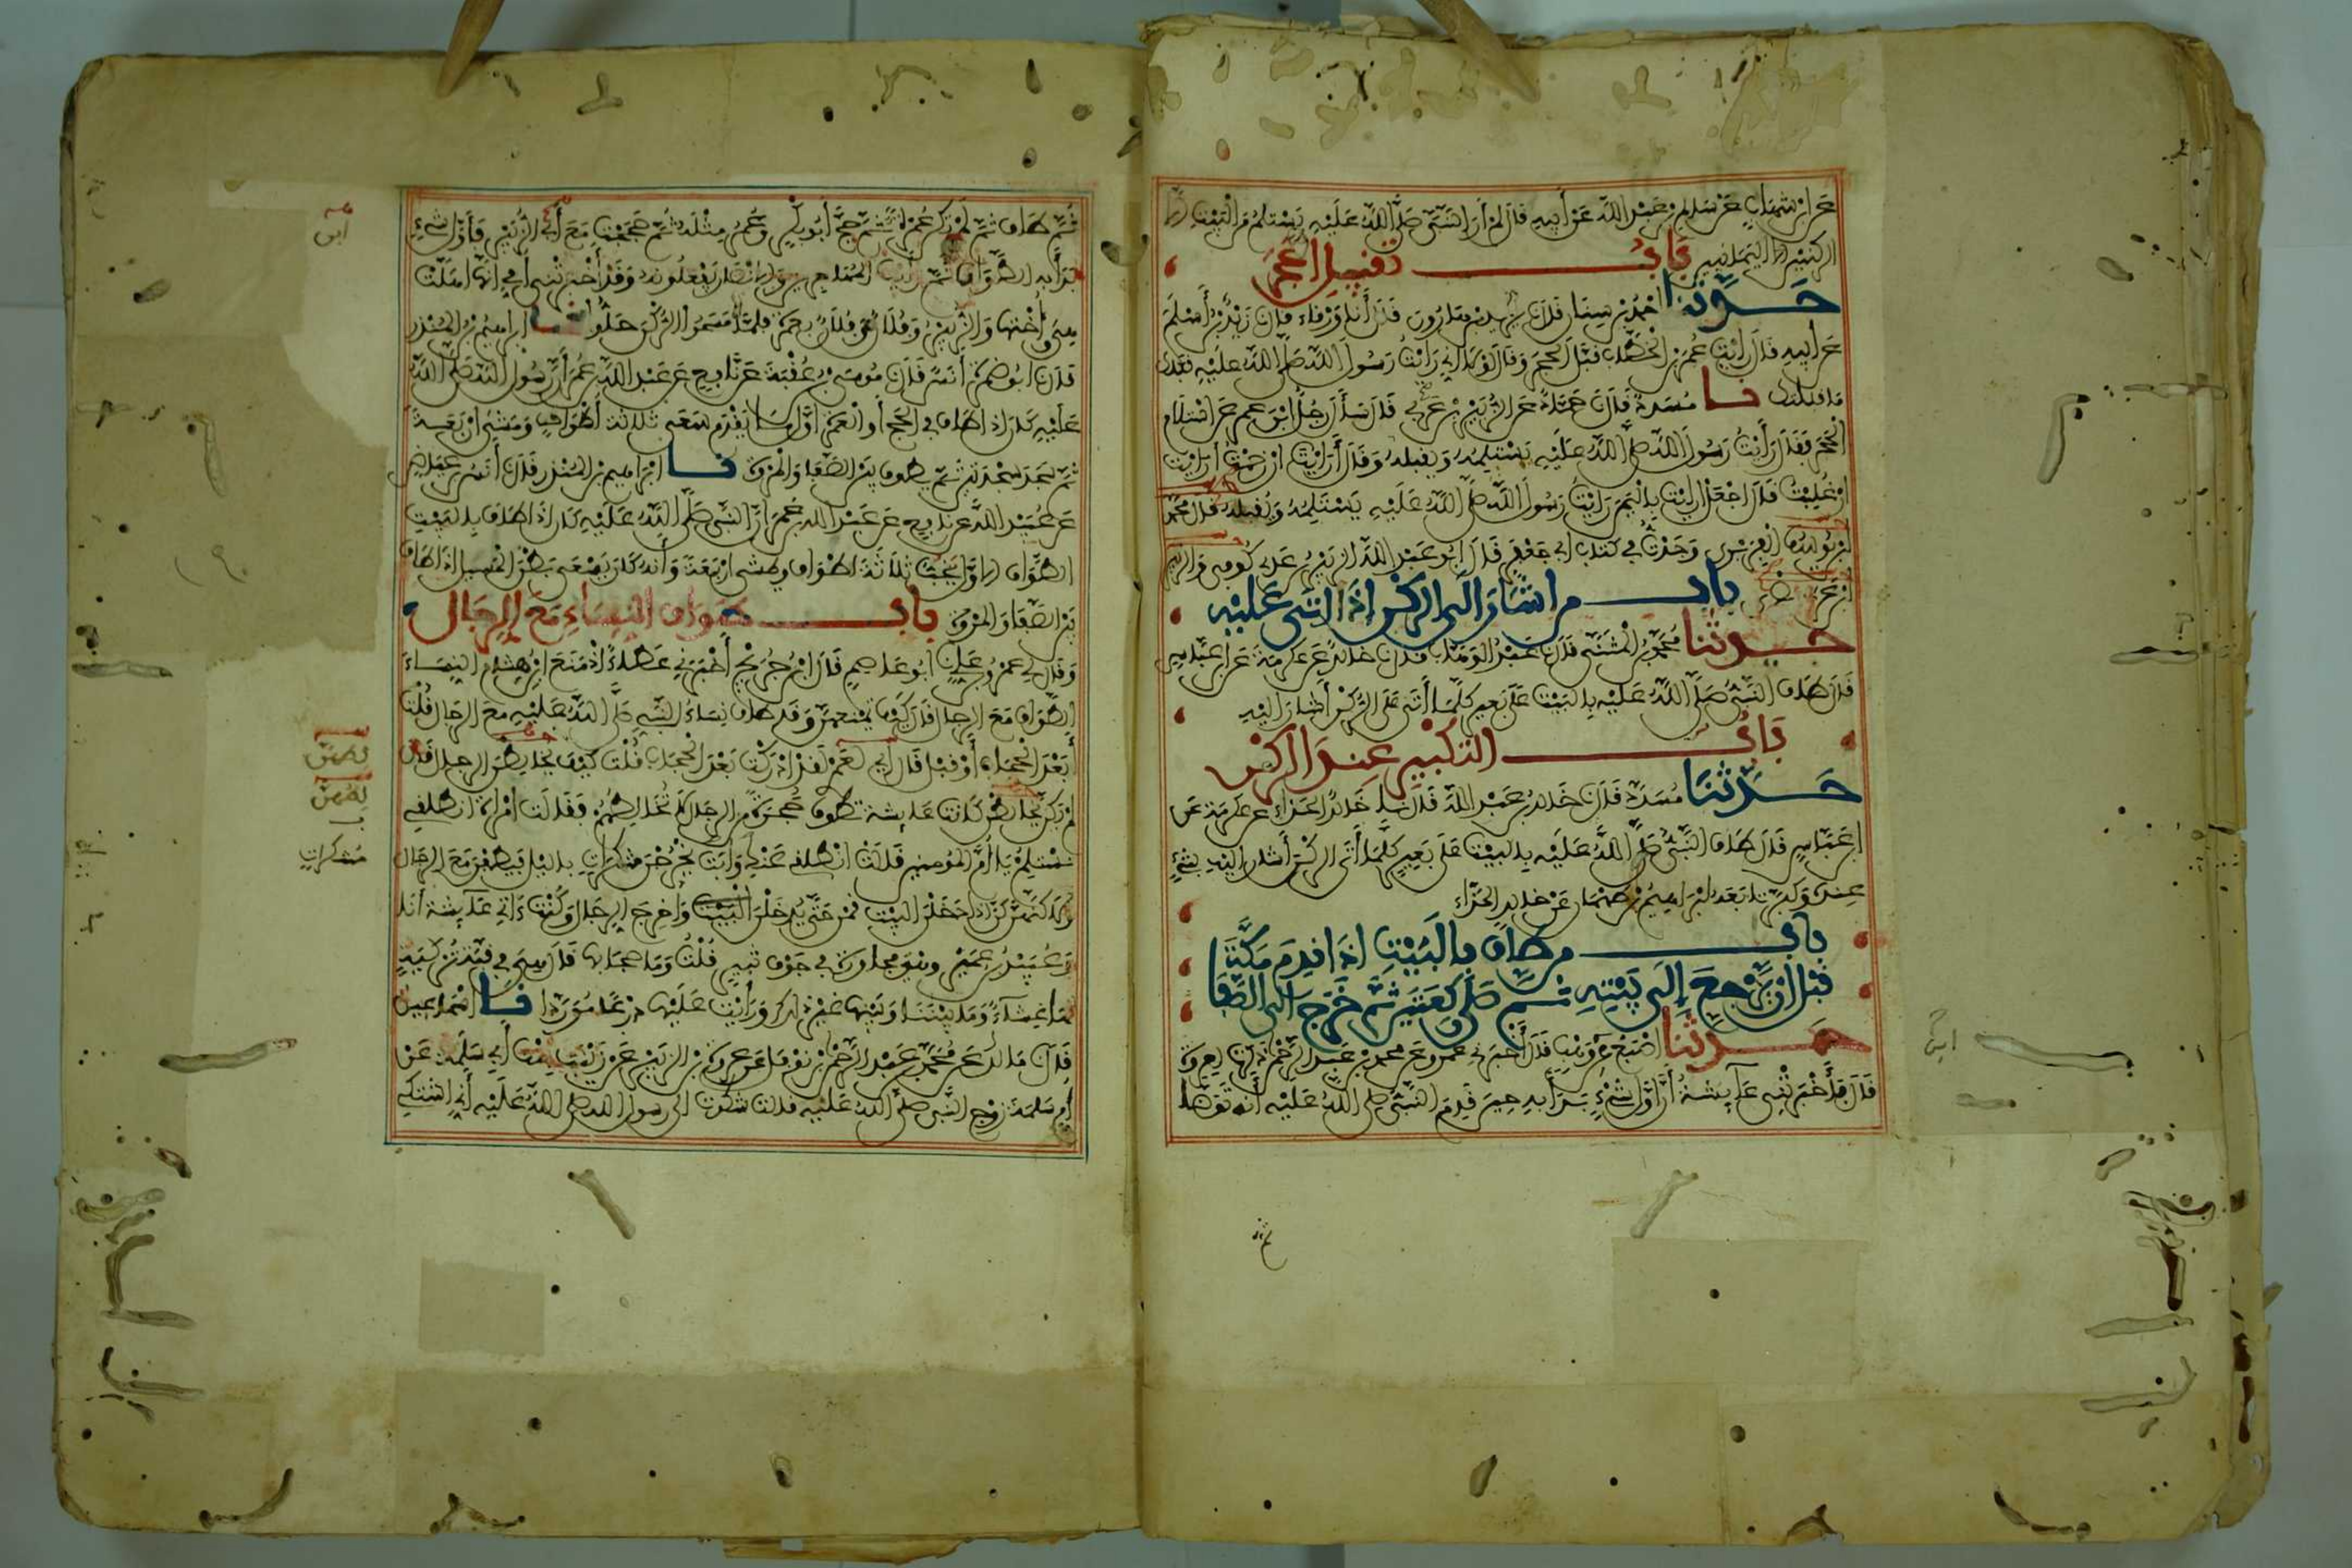 عن ابن شهاب عن سالم بن عبد الله عن أبيه قال لم أر النبي صلى الله عليه يستلم من البيت إلا
الركنين اليمانيين باب تقبيل الحجر
حدثنا أحمد بن سنان قال نا يزيد بن هارون قال أنا ورقاء قال نا زيد بن أسلم
عن أبيه قال رأيت عمر بن الخطاب قبل الحجر وقال لولا أني رأيت رسول الله صلى الله عليه قبلك
ما قبلتك نا مسدد قال نا حماد عن الزبير بن عربي قال سأل رجل ابن عمر عن استلام
الحجر فقال رأيت رسول الله صلى الله عليه يستلمه ويقبله وقال أرأيت إن زحمت أرأيت
إن غلبت قال اجعل أرأيت باليمن رأيت رسول الله صلى الله عليه يستلمه ويقبله قال محمد
بن يوسف الفربري وجدت في كتاب أبي جعفر قال أبو عبد الله الزبير بن عدي كوفي والزبير
بن عربي بصري باب من أشار إلى الركن إذا أتى عليه
حدثنا محمد بن المثنى قال نا عبد الوهاب قال نا خالد عن عكرمة عن ابن عباس
قال طاف النبي صلى الله عليه بالبيت على بعير كلما أتى على الركن أشار إليه
باب التكبير عند الركن
حدثنا مسدد قال نا خالد بن عبد الله قال نا خالد الحذاء عن عكرمة عن
ابن عباس قال طاف النبي صلى الله عليه بالبيت على بعير كلما أتى الركن أشار إليه بشيء
عنده وكبر تابعه إبراهيم بن طهمان عن خالد الحذاء
باب من طاف بالبيت إذا قدم مكة
قبل أن يرجع إلى بيته ثم صلى ركعتين ثم خرج إلى الصفا
حدثنا أصبغ عن ابن وهب قال أخبرني عمرو عن محمد بن عبد الرحمن ذكرت لعروة
قال فأخبرتني عائشة أن أول شيء بدأ به حين قدم النبي صلى الله عليه أنه توضأ
ابن
ثم طاف ثم لم تكن عمرة ثم حج أبو بكر وعمر مثله ثم حججت مع أبي الزبير فأول شيء
بدأ به الطواف ثم رأيت المهاجرين والأنصار يفعلونه وقد أخبرتني أمي أنها أهلت
هي وأختها والزبير وفلان وفلان بعمرة فلما مسحوا الركن حلوا نا إبراهيم بن المنذر
قال نا أبو ضمرة أنس قال نا موسى بن عقبة عن نافع عن عبد الله بن عمر أن رسول الله صلى الله
عليه كان إذا طاف في الحج أو العمرة أول ما يقدم سعى ثلاثة أطواف ومشى أربعة
ثم سجد سجدتين ثم يطوف بين الصفا والمروة نا إبراهيم بن المنذر قال نا أنس بن عياض
عن عبيد الله عن نافع عن عبد الله بن عمر أن النبي صلى الله عليه كان إذا طاف بالبيت
الطواف الأول يخب ثلاثة أطواف ويمشي أربعة وأنه كان يسعى بطن المسيل إذا طاف
بين الصفا والمروة باب طواف النساء مع الرجال
وقال لي عمرو بن علي نا أبو عاصم قال ابن جريج أخبرني عطاء إذ منع ابن هشام النساء
الطواف مع الرجال قال كيف تمنعهن وقد طاف نساء النبي صلى الله عليه مع الرجال قلت
أبعد الحجاب أو قبل قال إي لعمري لقد أدركته بعد الحجاب قلت كيف يخالطن الرجال قال
لم يكن يخالطن كانت عائشة تطوف حجرة من الرجال لا تخالطهم فقالت امرأة انطلقي
نستلم يا أم المؤمنين قالت انطلقي عنك وأبت يخرجن متنكرات بالليل فيطفن مع الرجال
ولكنهن كن إذا دخلن البيت قمن حتى يدخلن البيت وأخرج الرجال وكنت آتي عائشة أنا
وعبيد بن عمير وهي مجاورة في جوف ثبير قلت وما حجابها قال هي في قبة تركية
لها غشاء وما بيننا وبينها غير ذلك ورأيت عليها درعا موردا نا إسماعيل
قال نا مالك عن محمد بن عبد الرحمن بن نوفل عن عروة بن الزبير عن زينب بنت أبي سلمة عن
أم سلمة زوج النبي صلى الله عليه قالت شكوت إلى رسول الله صلى الله عليه أني أشتكي
ابن